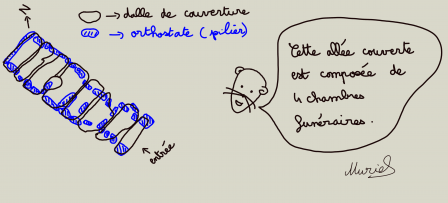 N
→ dalle de couverture
→ orthostate (pilier)
Cette allée couverte
est composée de
4 chambres
funéraires.
entrée
Muriel